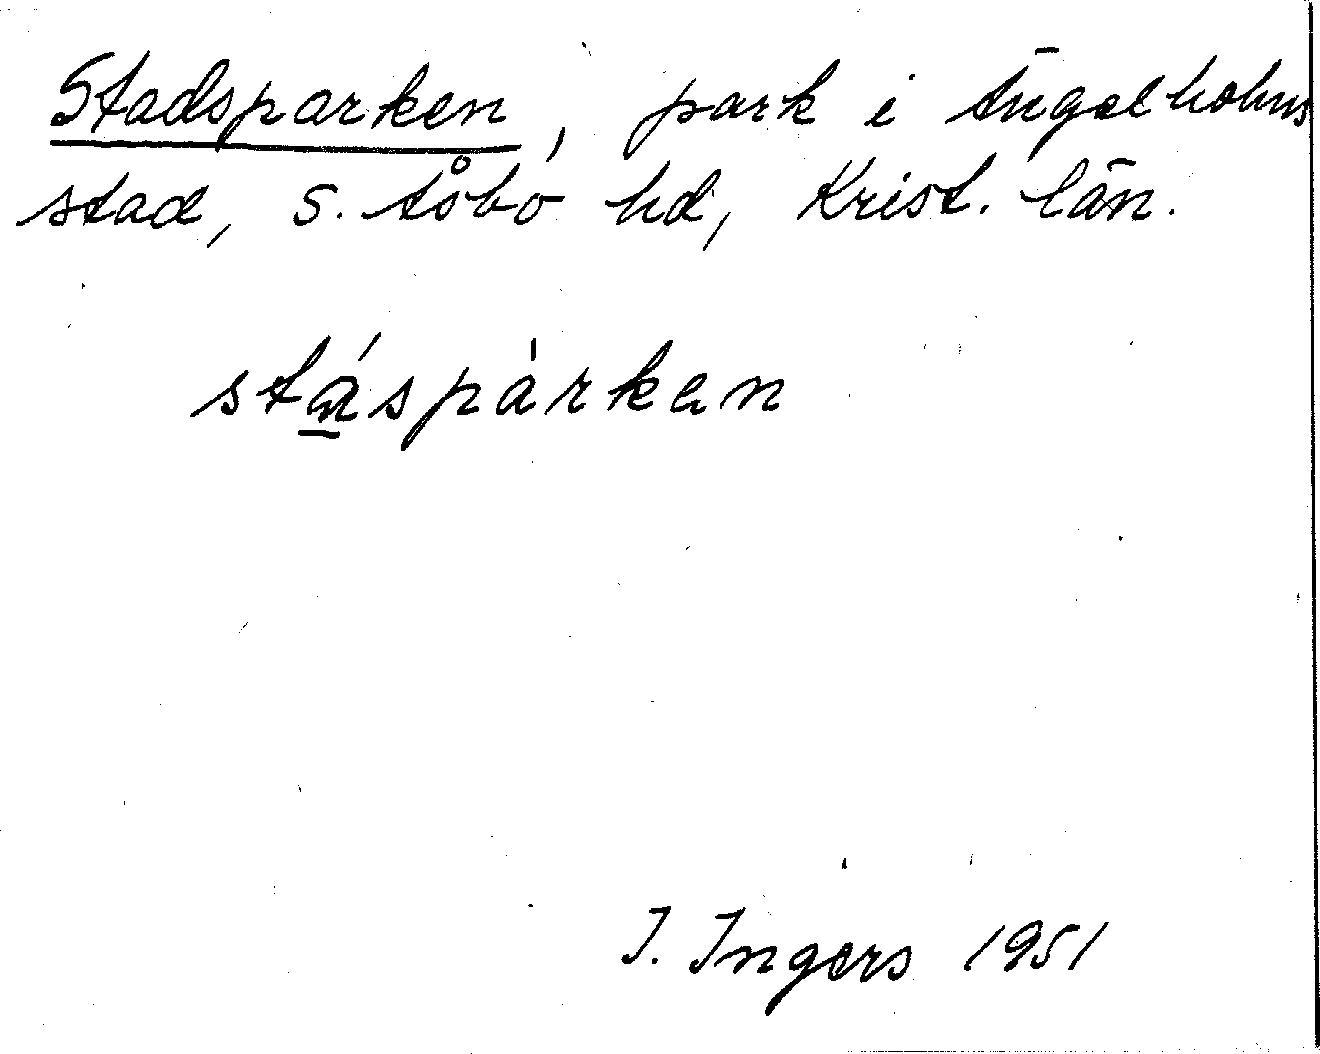 Stadsparken, park i Ängelholms
stad, S. Åsbo hd, Krist. län.
stáspàrken
I. Ingers 1951